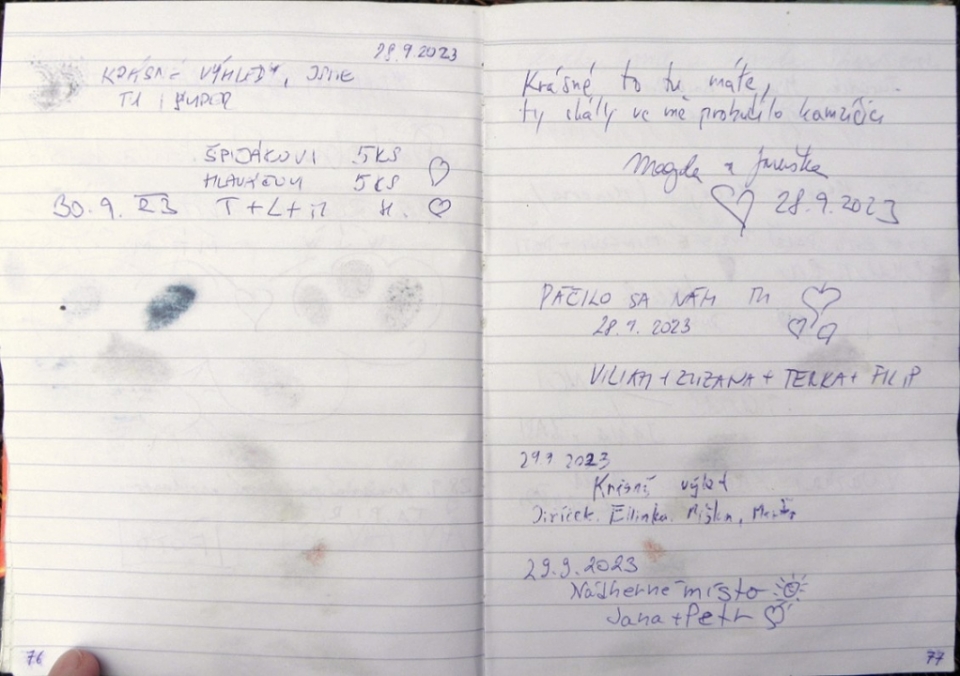 29.9.2023
KRÁSNÉ VÝHLEDY, JSME
TU SUPER
ŠPIJÁKOVI 5KS
HLAVÁČOVI 5KS
30.9. 23 T+L+M H.
76
Krásné to tu máte,
ty skály ve mě probudilo kamzíčici
Magda a
28.9.2023
PÁČILO SA NÁM TU
28.9.2023
VILIAM + ZUZANA + TERKA + FILIP
29.9 2023
Krásný výlet
Jiříček. Elinka.
29.9.2023
Nádherné místo
Jana + Petr
77